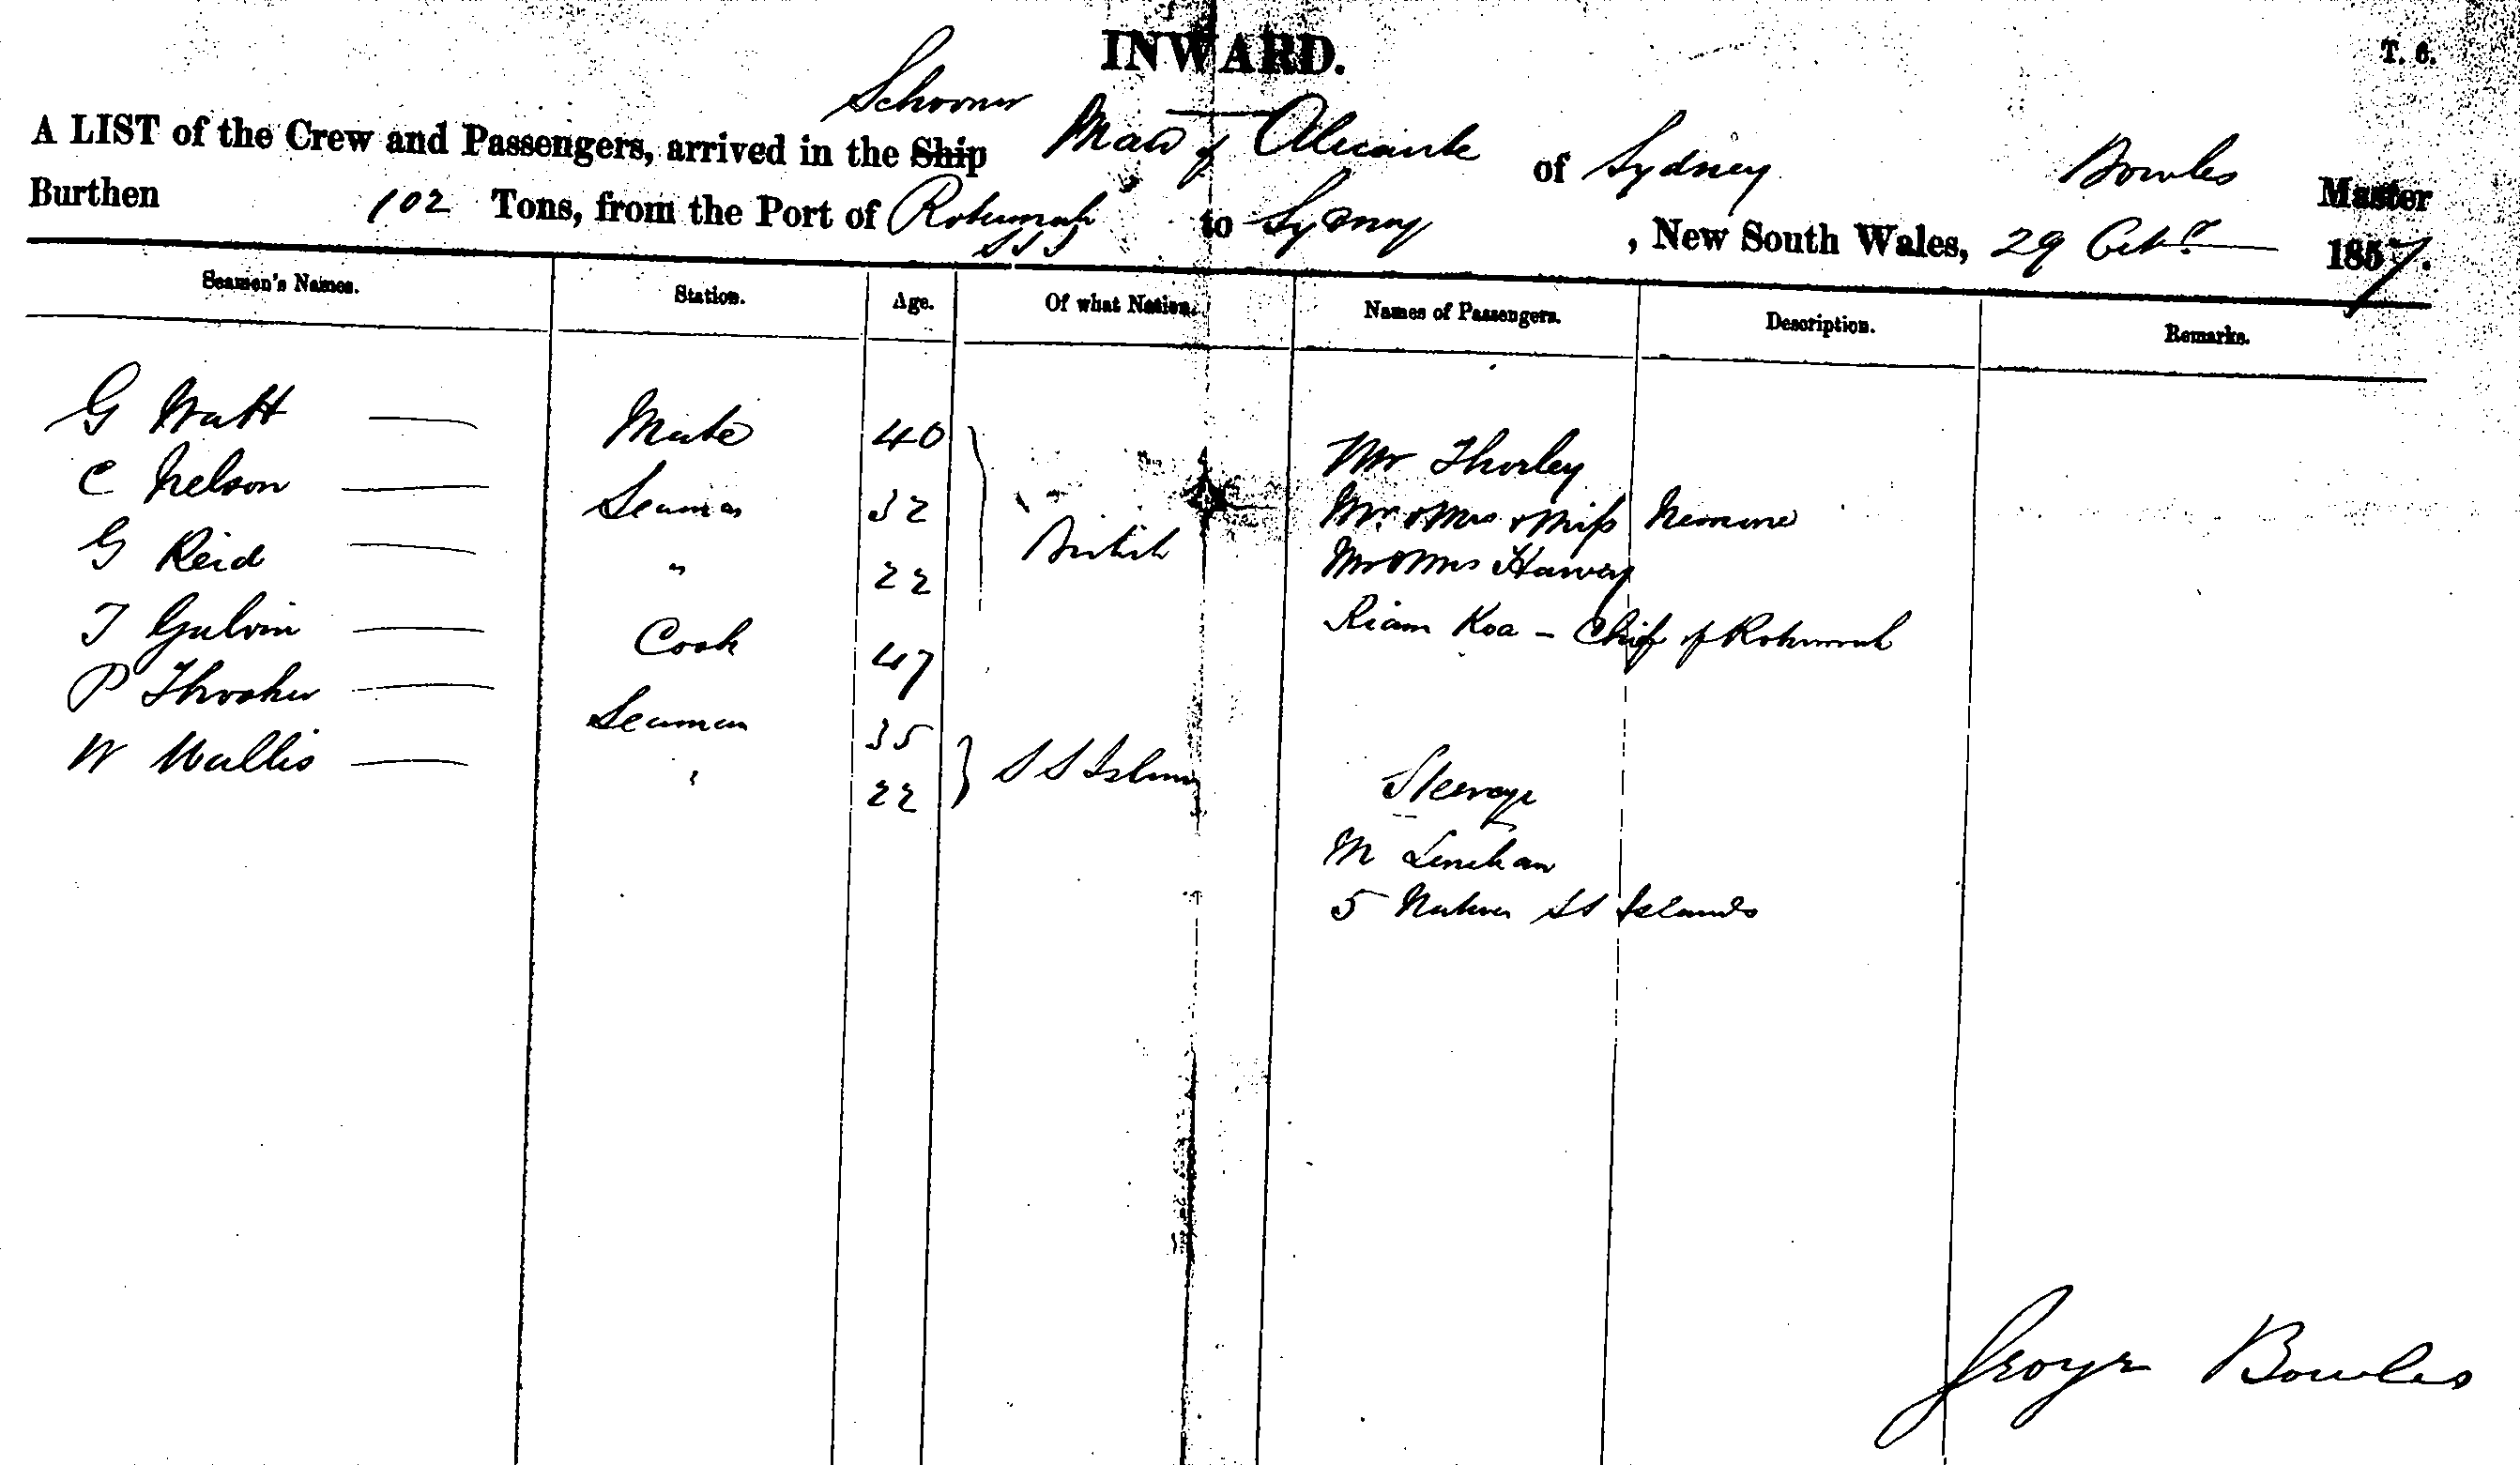 INWARD.
T. 6.
Schooner
A LIST of the Crew and Passengers, arrived in the Ship Maid of Alicante of Sydney Bowles Master
Burthen 102 Tons, from the Port of Rotumah to Sydney, New South Wales, 29 Octr 1857.
SSI
Seamen's Names. Station. Age. Of what Nation. Names of Passengers. Description. Remarks.
G Watt Mate 40 Mr Thorley
C Nelson Seaman 32 Mr. & Mrs & Miss
G Reid " 22 British Mr & Mrs Harvey
T Galvin Cook 47 Riam Koa - Chief of Rotumah
P Thrasher Seaman 35
W Wallis " 22 S S Islands Steerage
M Linehan
5 Natives SS Islands
George Bowles